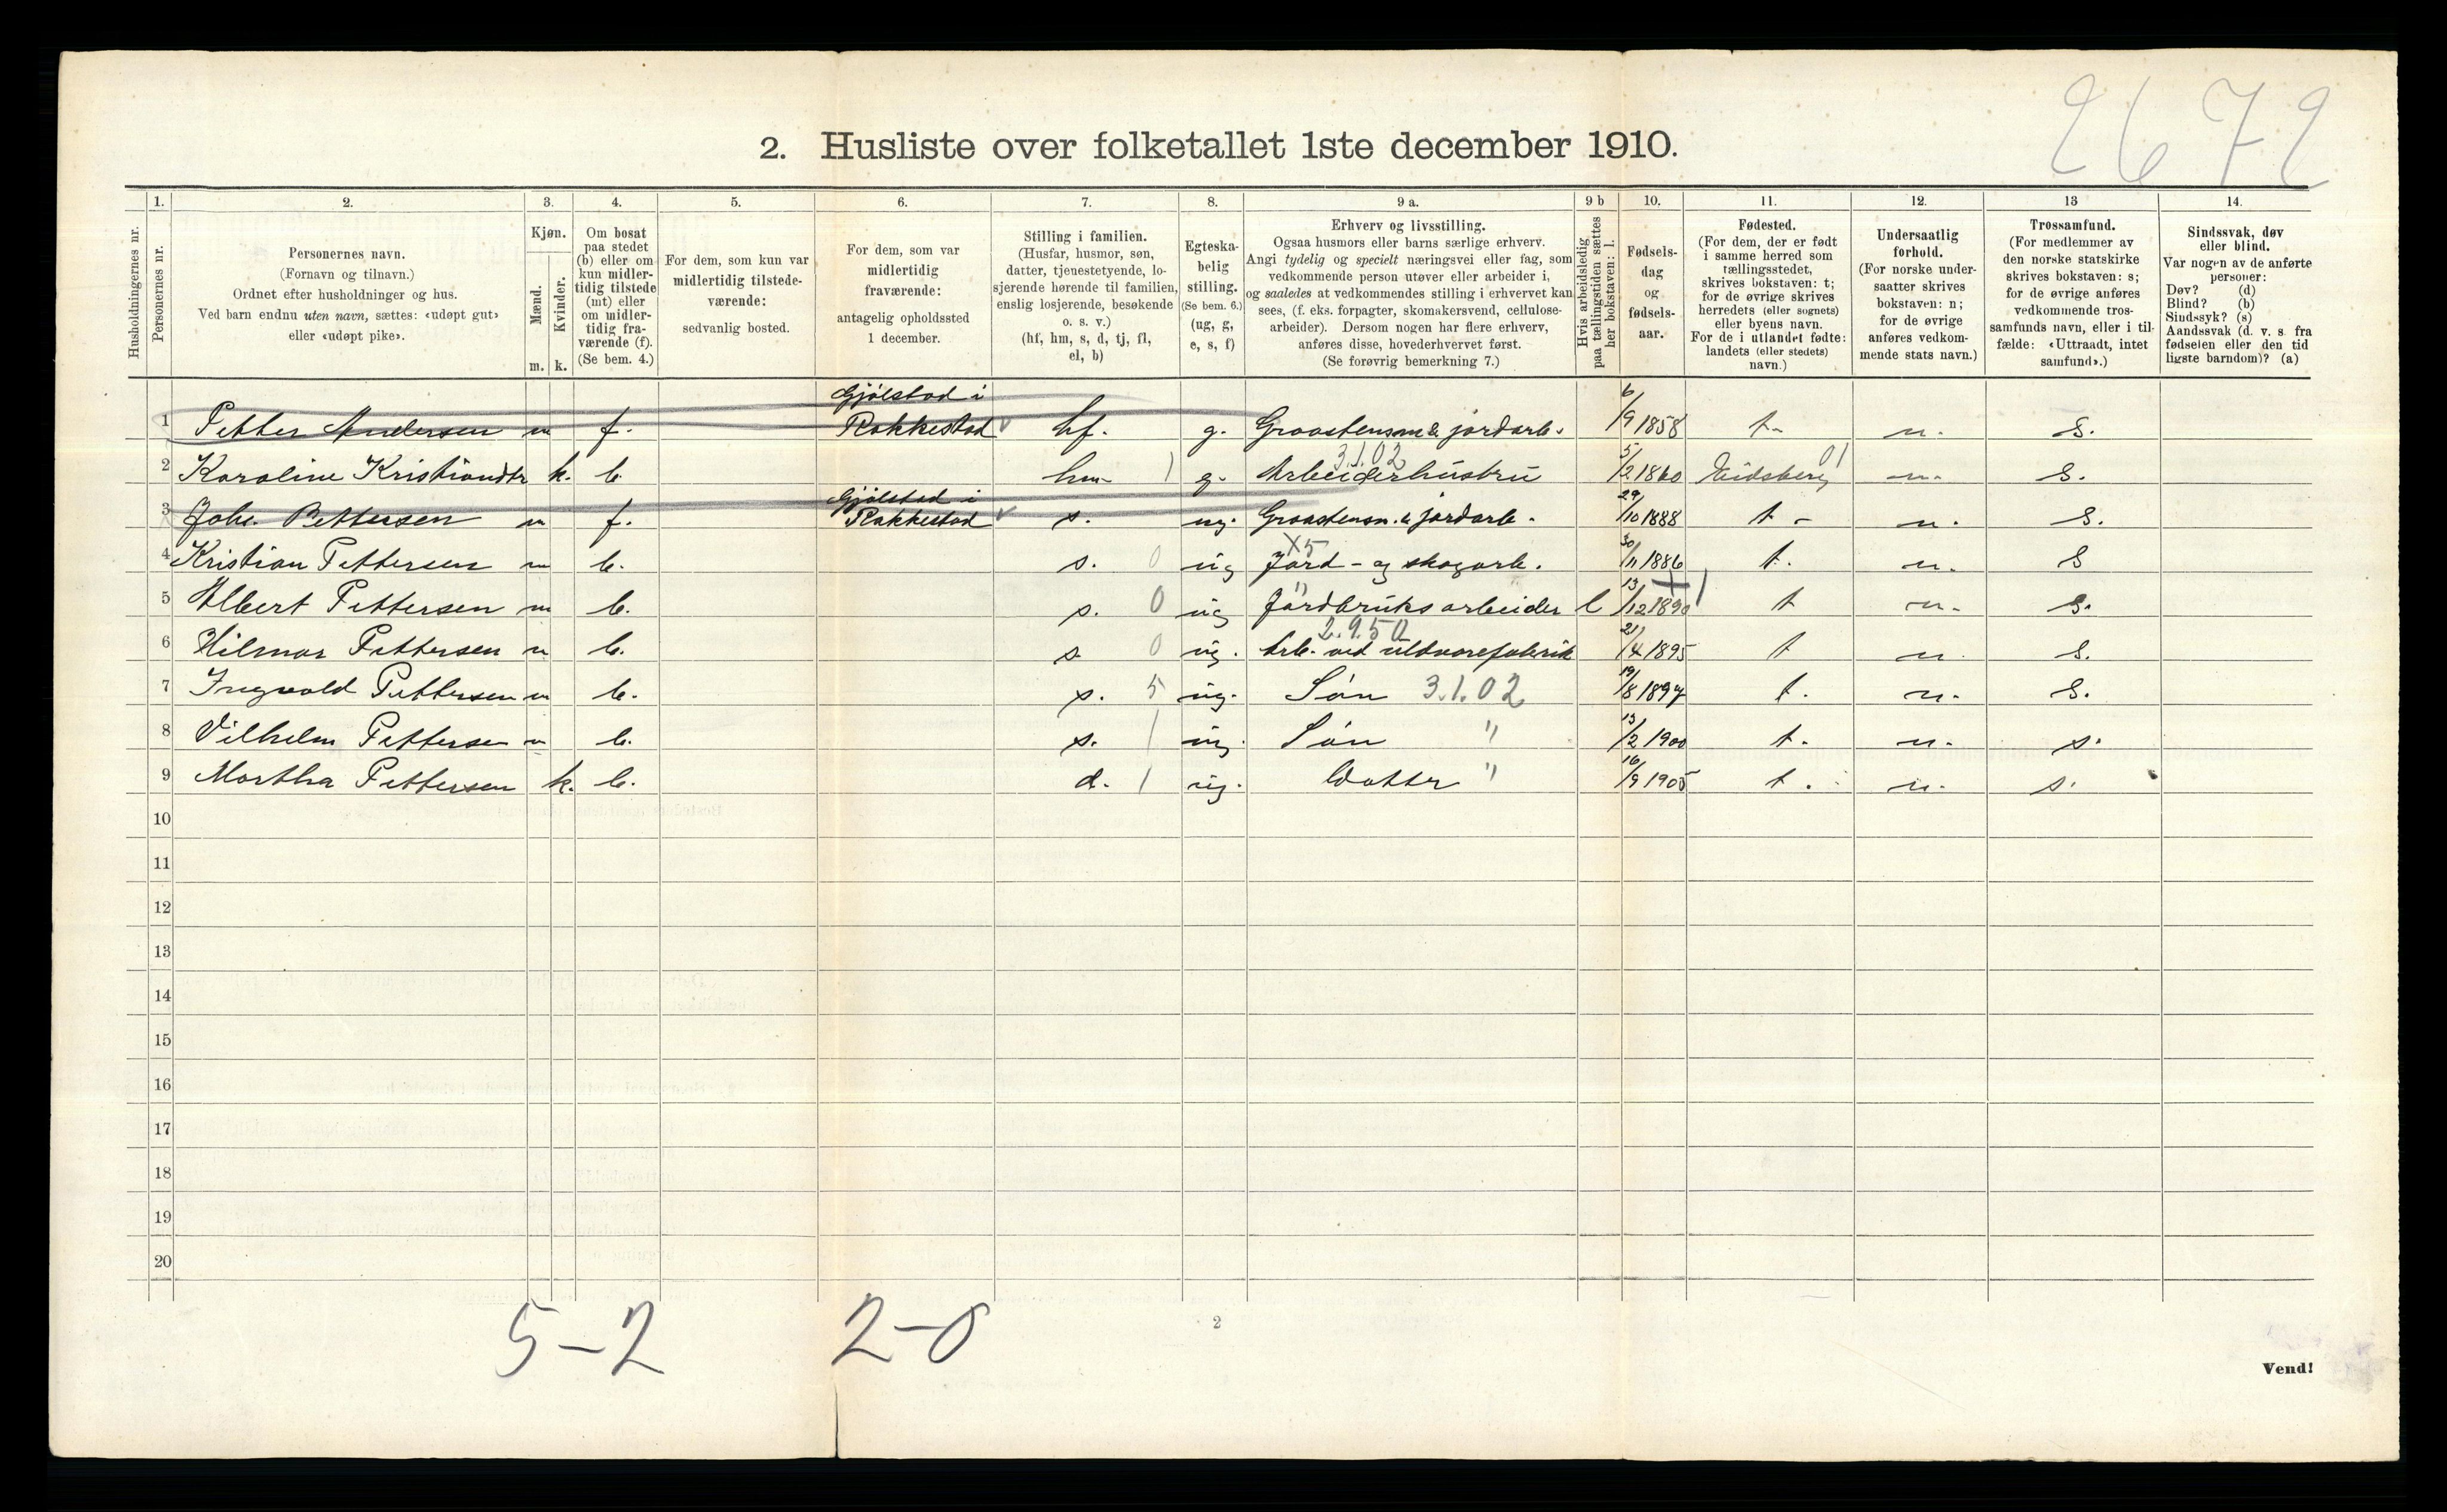 2672
2. Husliste over folketallet 1ste december 1910.
Husholdningernes nr.
1. Personernes nr.
2. Personernes navn.
(Fornavn og tilnavn.)
Ordnet efter husholdninger og hus.
Ved barn endnu uten navn, sættes: «udøpt gut»
eller «udøpt pike».
3. Kjøn.
Mænd. Kvinder.
m. k.
4. Om bosat
paa stedet
(b) eller om
kun midler-
tidig tilstede
(mt) eller
om midler-
tidig fra-
værende (f).
(Se bem. 4.)
5. For dem, som kun var
midlertidig tilstede-
værende:
sedvanlig bosted.
6. For dem, som var
midlertidig
fraværende:
antagelig opholdssted
1 december.
7. Stilling i familien.
(Husfar, husmor, søn,
datter, tjenestetyende, lo-
sjerende hørende til familien,
enslig losjerende, besøkende
o. s. v.)
(hf, hm, s, d, tj, fl,
el, b)
8. Egteska-
belig
stilling.
(Se bem. 6.)
(ug, g,
e, s, f)
9 a. Erhverv og livsstilling.
Ogsaa husmors eller barns særlige erhverv.
Angi tydelig og specielt næringsvei eller fag, som
vedkommende person utøver eller arbeider i,
og saaledes at vedkommendes stilling i erhvervet kan
sees, (f. eks. forpagter, skomakersvend, cellulose-
arbeider). Dersom nogen har flere erhverv,
anføres disse, hovederhvervet først.
(Se forøvrig bemerkning 7.)
9 b Hvis arbeidsledig
paa tællingstiden sættes
her bokstaven: l.
10. Fødsels-
dag
og
fødsels-
aar.
11. Fødested.
(For dem, der er født
i samme herred som
tællingsstedet,
skrives bokstaven: t;
for de øvrige skrives
herredets (eller sognets)
eller byens navn.
For de i utlandet fødte:
landets (eller stedets)
navn.)
12. Undersaatlig
forhold.
(For norske under-
saatter skrives
bokstaven: n;
for de øvrige
anføres vedkom-
mende stats navn.)
13 Trossamfund.
(For medlemmer av
den norske statskirke
skrives bokstaven: s;
for de øvrige anføres
vedkommende tros-
samfunds navn, eller i til-
fælde: «Uttraadt, intet
samfund».)
14. Sindssvak, døv
eller blind.
Var nogen av de anførte
personer:
Døv? (d)
Blind? (b)
Sindssyk? (s)
Aandssvak (d. v. s. fra
fødselen eller den tid
ligste barndom)? (a)
1 Petter Andersen m f. Gjölstad i Rakkestad hf. g. Graastensm & jordarb. 6/9 1858 t- n. s.
2 Karoline Kristiandtr k. b. hm- 1 g. Arbeiderhustru 3.1.02 5/2 1860 Eidsberg 01 n. s.
3 Joh. Pettersen m f. Gjölstad i Rakkestad s. ug. Graastensm. & jordarb. 29/10 1888 t- n. s.
4 Kristian Pettersen m b. s. 0 ug Jord- og skogarb. X5 30/11 1886 t. n. s
5 Albert Pettersen m b. s. 0 ug Jordbruksarbeider " l 13/12 1890 t n. s.
6 Hilmar Pettersen m b. s. 0 ug. Arb. ved uldvarefabrik 2.9.50 21/4 1895 t n s.
7 Ingvald Pettersen m b. s. 5 ug. Sön 3.1.02 19/8 1897 t. n. s.
8 Vilhelm Pettersen m b. s. 1 ug. Sön " 13/2 1900 t. n. s.
9 Martha Pettersen k. b. d. 1 ug. Datter " 16/9 1905 t. n. s.
10
11
12
13
14
15
16
17
18
19
20
5-2 2-0
2
Vend!